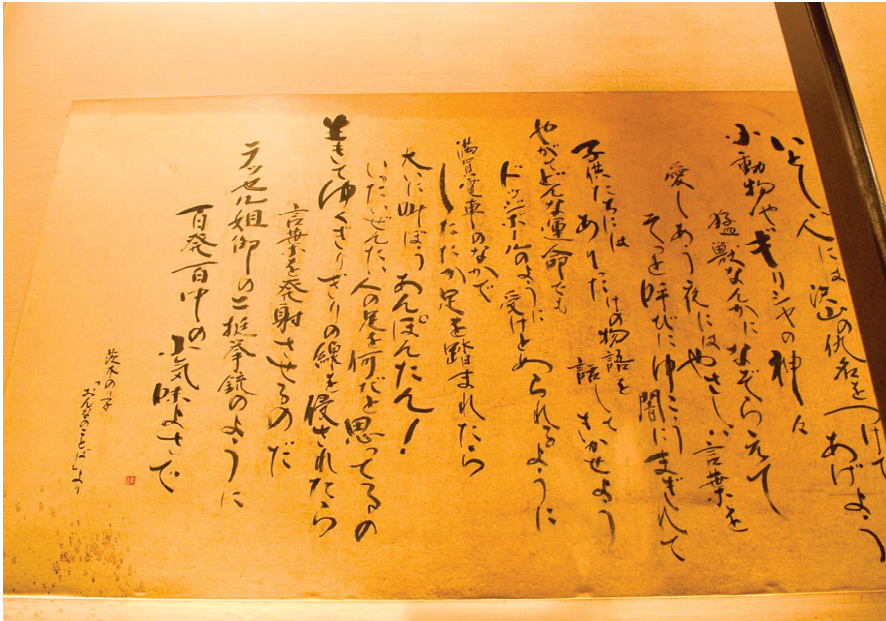 いとしい人には 沢山の仇名をつけて
あげよう
小動物や ギリシャの神々
猛獣なんかになぞらえて
愛しあう夜には やさしい言葉を
そっと呼びにゆこう 闇にまぎれて
子供たちには ありったけの物語を
話してきかせよう
やがてどんな運命でも
ドッジボールのように 受けとめられるように
満員電車のなかで
したたか足を踏まれたら
大いに叫ぼう あんぽんたん!
いったいぜんたい 人の足を何だと思ってるの
生きてゆくぎりぎりの線を侵されたら
言葉を発射させるのだ
ラッセル姐御の二挺拳銃のように
百発百中の小気味よさで
茨木のり子
「おんなのことば」より